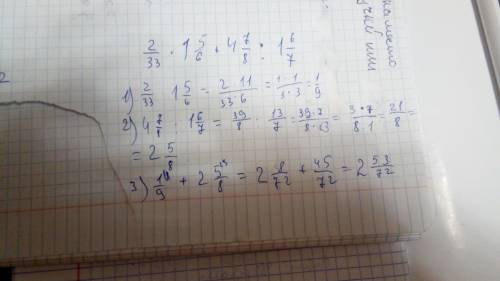 2/33 · 1 5/6 + 4 7/8 : 1 6/7
1) 2/33 · 1 5/6 = 2 · 11/33 · 6 = 1 · 1/3 · 3 = 1/9
2) 4 7/8 : 1 6/7 = 39/8 : 13/7 = 39 · 7/8 · 13 = 3 · 7/8 · 1 = 21/8 =
= 2 5/8
3) 1/9 + 2 5/8 = 2 8/72 + 45/72 = 2 53/72